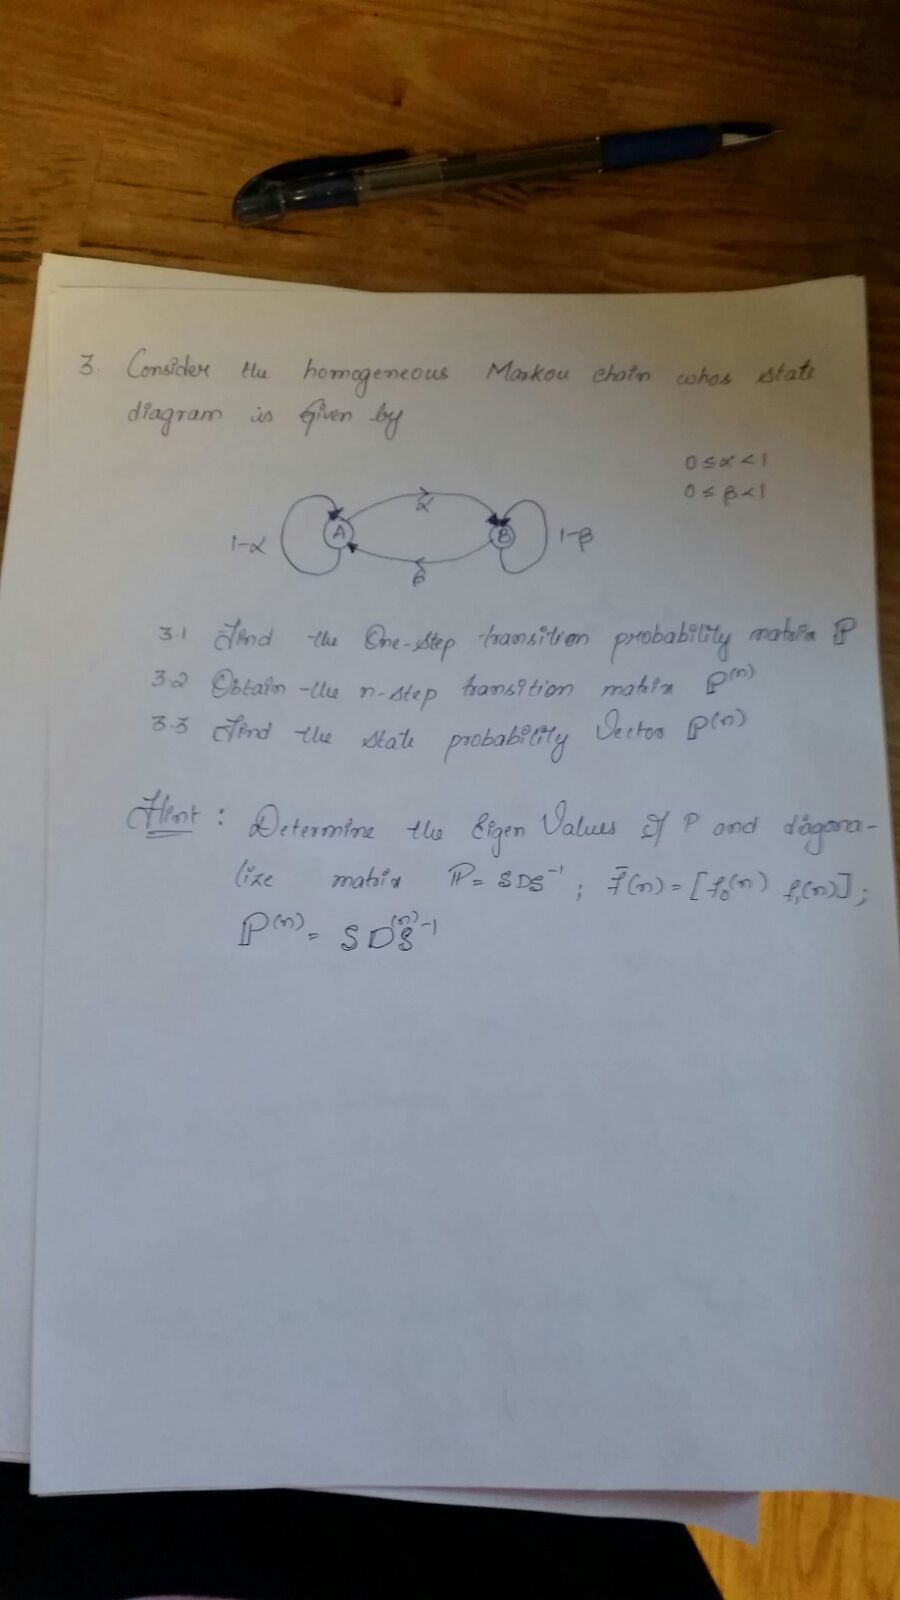 3. Consider the homogeneous Markov chain whos state
diagram is Given by
0 ≤ α < 1
0 ≤ β < 1
α
1-α A B 1-β
β
3.1 Find the One-Step transition probability matrix ℙ
3.2 Obtain the n-step transition matrix ℙ(n)
3.3 Find the state probability Vector ℙ(n)
Hint : Determine the Eigen Values of P and diagona-
lize matrix ℙ = SDS⁻¹ ;
ℙ(n) = SD(n)S⁻¹